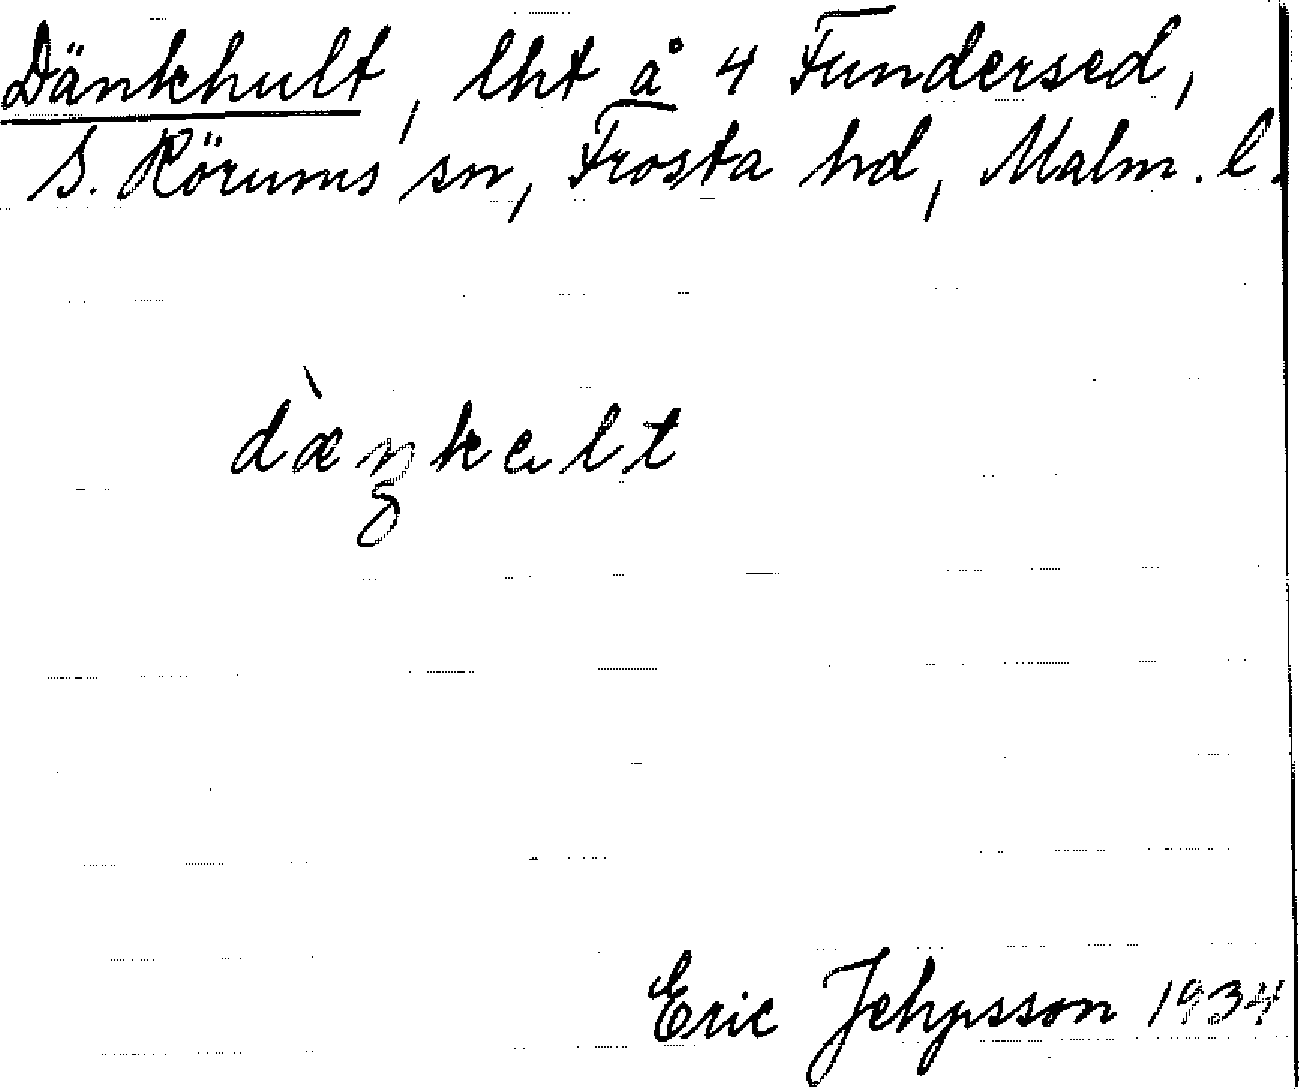 Dänkhult, lht å 4 Fundersed,
S. Rörums sn, Frosta hd, Malm. l.
Eric Jehpsson 1934